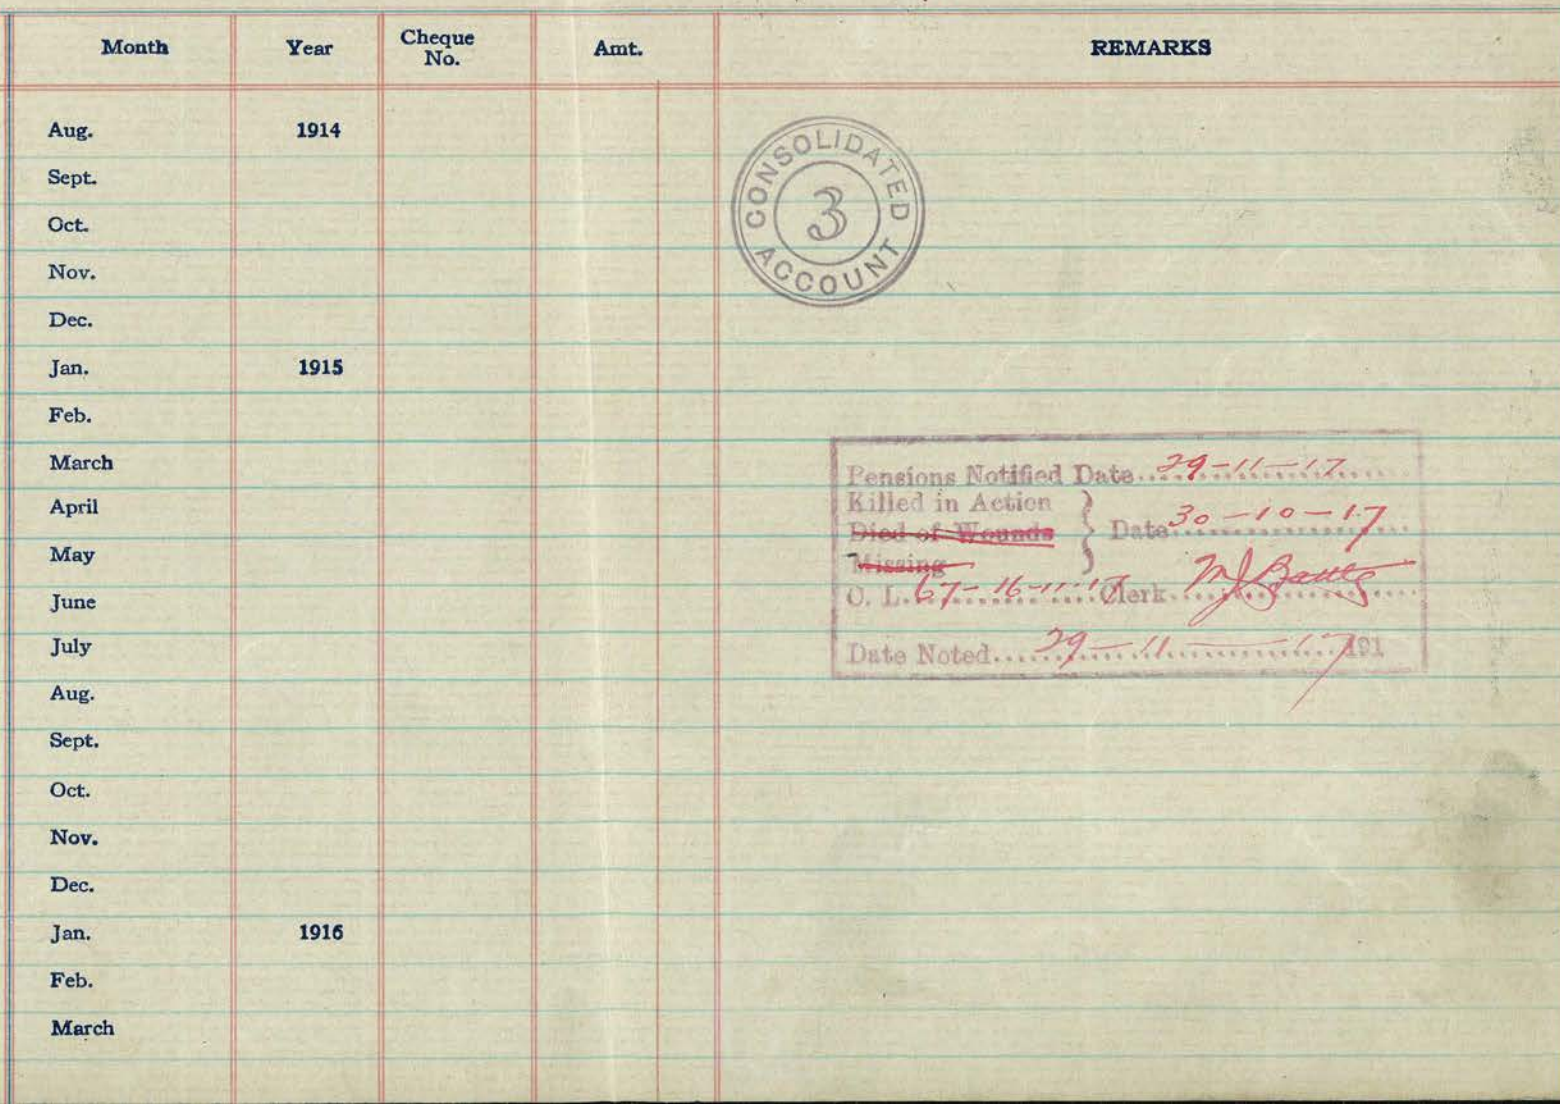 Month Year Cheque No. Amt. REMARKS
Aug. 1914
Sept.
Oct.
Nov.
Dec.
Jan. 1915
Feb.
March
April
May
June
July
Aug.
Sept.
Oct.
Nov.
Dec.
Jan. 1916
Feb.
March
CONSOLIDATED ACCOUNT
3
Pensions Notified Date 29-11-17
Killed in Action
Died of Wounds } Date 30-10-17
Missing
C. L. 67-16-11-17 Clerk
Date Noted 29-11-17 191